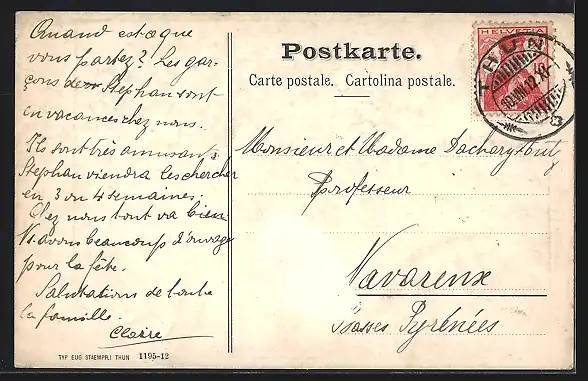 Quand est-ce que
vous partez? Les gar-
çons de Stephan sont
en vacances chez nous.
Ils sont très amusants.
Stephan viendra les chercher
en 3 ou 4 semaines.
Chez nous tout va bien
Ns. avons beaucoup d'ouvrage
pour la fête.
Salutations de toute
la famille.
Claire
TYP EUG STAEMPFLI THUN 1195-12
Postkarte.
Carte postale. Cartolina postale.
HELVETIA
THUN
Monsieur et Madame
Professeur
Navarenx
Basses Pyrénées